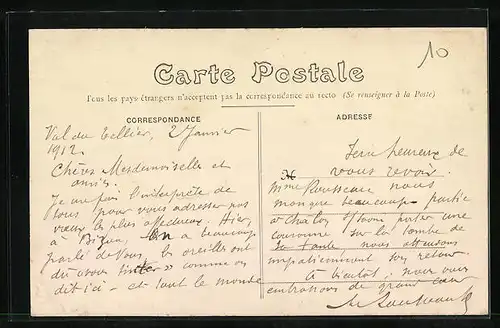 10
Carte Postale
Tous les pays étrangers n'acceptent pas la correspondance au recto (Se renseigner à la Poste)
CORRESPONDANCE
Val du Cellier, 2 Janvier
1912.
Chères Mesdemoiselles et
amies.
Je me fais l'interprète de
tous pour vous adresser nos
vœux les plus affectueux. Hier,
à on a beaucoup
parlé de Vous, les oreilles ont
du vous tinter » comme on
dit ici — et tout le monde
ADRESSE
sera heureux de
vous revoir.
Mme Rousseau nous
manque beaucoup partie
à porter une
couronne sur la tombe de
sa tante, nous attendons
impatiemment son retour
à bientôt, nous vous
embrassons de grand cœur